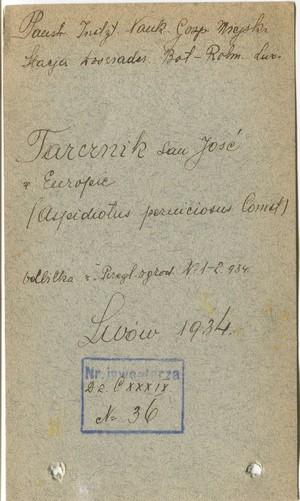 Państ. Inst. Nauk. Gosp. Wiejski
Stacja Doświadcz. Bot-Roln. Lwr.
Tarcznik San José
w Europie
(Aspidiotus perniciosus Comst)
odbitka z Przegl. ogrod. № 1-2. 934.
Lwów 1934.
Nr. inwentarza
Dz. CXXXIX
№ 36